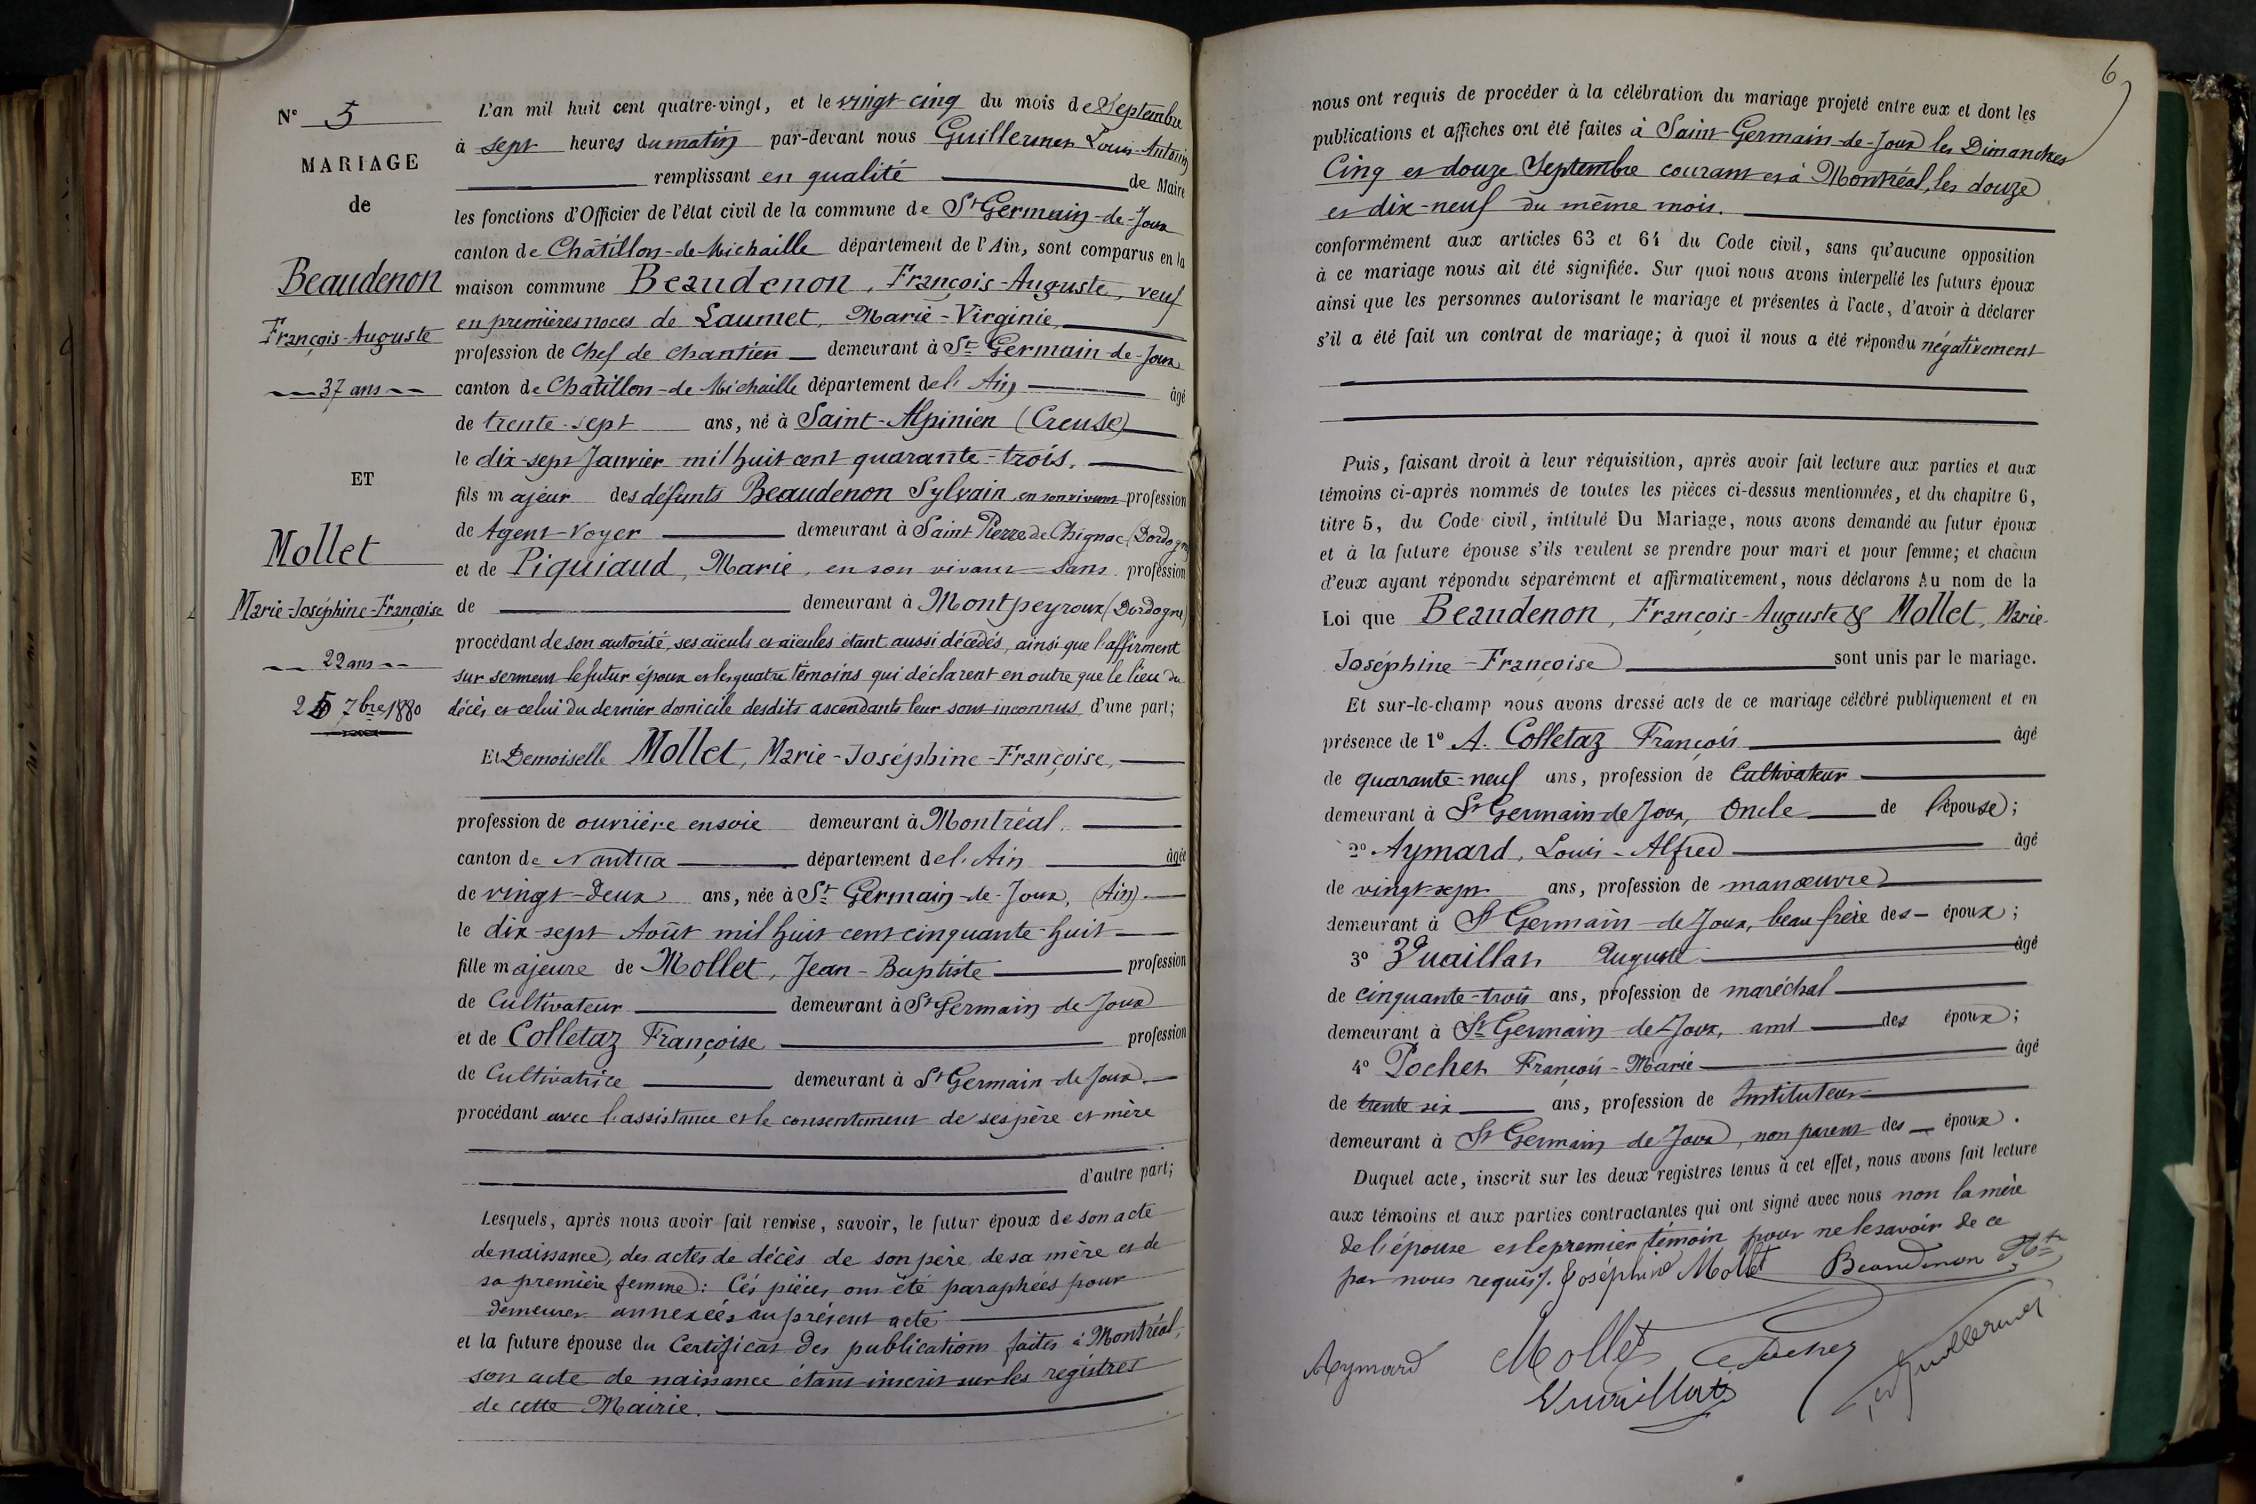 N° 5
MARIAGE
de
Beaudenon
François-Auguste
37 ans
ET
Mollet
Marie-Joséphine-Françoise
22 ans
25 7bre 1880
L'an mil huit cent quatre-vingt, et le vingt-cinq du mois de Septembre
à sept heures du matin par-devant nous Guillermet Louis-Antonin
remplissant en qualité de Maire
les fonctions d'Officier de l'état civil de la commune de St Germain-de-Joux
canton de Châtillon-de-Michaille département de l'Ain, sont comparus en la
maison commune Beaudenon, François-Auguste, veuf
en premières noces de Laumet, Marie-Virginie,
profession de Chef de chantier demeurant à St Germain-de-Joux
canton de Châtillon-de-Michaille département de l'Ain âgé
de trente-sept ans, né à Saint-Alpinien (Creuse)
le dix-sept Janvier mil huit cent quarante-trois,
fils majeur des défunts Beaudenon Sylvain en son vivant profession
de Agent-Voyer demeurant à Saint Pierre de Chignac (Dordogne)
et de Piquiaud, Marie, en son vivant sans profession
de demeurant à Montpeyroux (Dordogne)
procédant de son autorité, ses aïeuls et aïeules étant aussi décédés, ainsi que l'affirment
sur serment le futur époux et les quatre témoins qui déclarent en outre que le lieu du
décès et celui du dernier domicile desdits ascendants leur sont inconnus d'une part;
Et Demoiselle Mollet, Marie-Joséphine-Françoise,
profession de ouvrière en soie demeurant à Montréal,
canton de Nantua département de l'Ain âgée
de vingt-deux ans, née à St Germain-de-Joux, (Ain)
le dix-sept Août mil huit cent cinquante-huit
fille majeure de Mollet, Jean-Baptiste profession
de Cultivateur demeurant à St Germain de Joux
et de Colletaz Françoise profession
de Cultivatrice demeurant à St Germain de Joux
procédant avec l'assistance et le consentement de ses père et mère
d'autre part;
Lesquels, après nous avoir fait remise, savoir, le futur époux de son acte
de naissance, des actes de décès de son père, de sa mère et de
sa première femme: Cés pièces ont été paraphées pour
demeurer annexées au présent acte
et la future épouse du Certificat des publications faites à Montréal,
son acte de naissance étant inscrit sur les registres
de cette Mairie.
6
nous ont requis de procéder à la célébration du mariage projeté entre eux et dont les
publications et affiches ont été faites à Saint-Germain-de-Joux les Dimanches
Cinq et douze Septembre courant et à Montréal, les douze
et dix-neuf du même mois.
conformément aux articles 63 et 64 du Code civil, sans qu'aucune opposition
à ce mariage nous ait été signifiée. Sur quoi nous avons interpellé les futurs époux
ainsi que les personnes autorisant le mariage et présentes à l'acte, d'avoir à déclarer
s'il a été fait un contrat de mariage; à quoi il nous a été répondu négativement
Puis, faisant droit à leur réquisition, après avoir fait lecture aux parties et aux
témoins ci-après nommés de toutes les pièces ci-dessus mentionnées, et du chapitre 6,
titre 5, du Code civil, intitulé Du Mariage, nous avons demandé au futur époux
et à la future épouse s'ils veulent se prendre pour mari et pour femme; et chacun
d'eux ayant répondu séparément et affirmativement, nous déclarons Au nom de la
Loi que Beaudenon, François-Auguste & Mollet, Marie-
Joséphine-Françoise sont unis par le mariage.
Et sur-le-champ nous avons dressé acte de ce mariage célébré publiquement et en
présence de 1° A. Colletaz François âgé
de quarante-neuf ans, profession de Cultivateur
demeurant à St Germain de Joux, Oncle de l'épouse;
2° Aymard, Louis-Alfred âgé
de vingt-sept ans, profession de manœuvre
demeurant à St Germain-de-Joux, beau frère des époux;
3° Vuaillat Auguste âgé
de cinquante-trois ans, profession de maréchal
demeurant à St Germain-de-Joux, ami des époux;
4° Pochet François-Marie âgé
de trente six ans, profession de Instituteur
demeurant à St Germain de Joux, non parent des époux.
Duquel acte, inscrit sur les deux registres tenus à cet effet, nous avons fait lecture
aux témoins et aux parties contractantes qui ont signé avec nous non la mère
de l'épouse et le premier témoin pour ne le savoir de ce
par nous requis. Joséphine Mollet Beaudenon Ate
Aymard Mollet Pochet Guillermet
Vuaillat